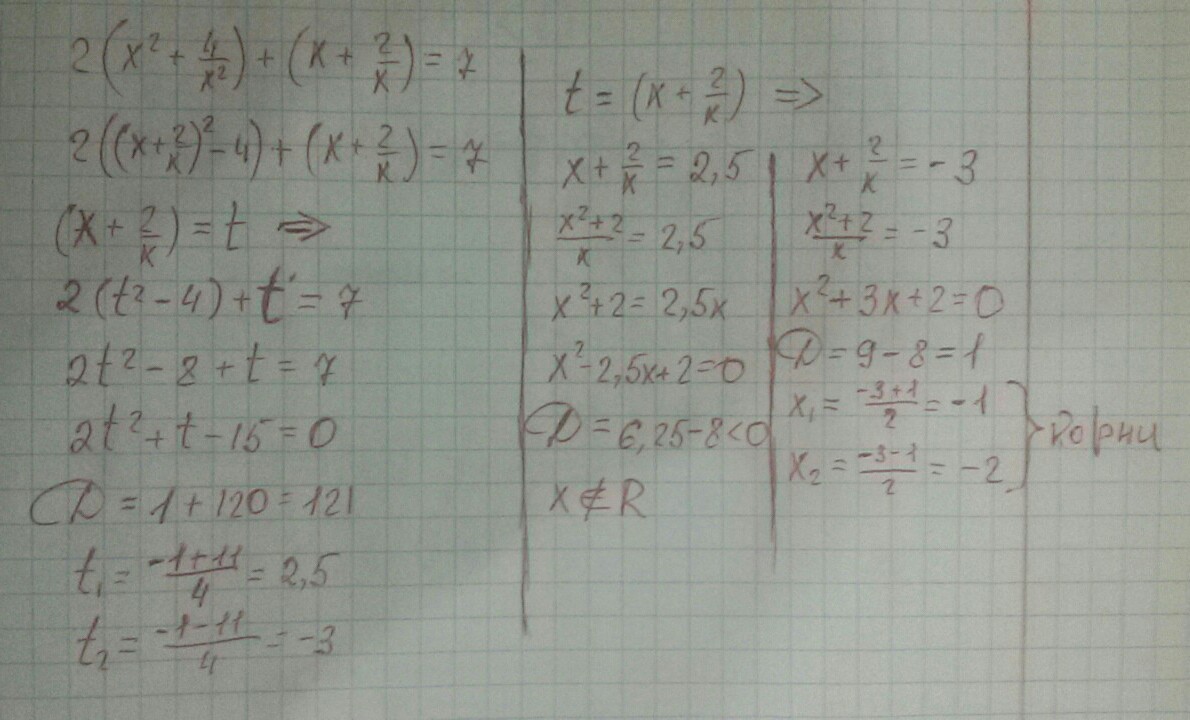 2(x² + 4/x²) + (x + 2/x) = 7
2((x + 2/x)² - 4) + (x + 2/x) = 7
(x + 2/x) = t ⇒
2(t² - 4) + t = 7
2t² - 8 + t = 7
2t² + t - 15 = 0
D = 1 + 120 = 121
t₁ = (-1+11)/4 = 2,5
t₂ = (-1-11)/4 = -3
t = (x + 2/x) ⇒
x + 2/x = 2,5
(x²+2)/x = 2,5
x² + 2 = 2,5x
x² - 2,5x + 2 = 0
D = 6,25 - 8 < 0
x ∉ R
x + 2/x = -3
(x²+2)/x = -3
x² + 3x + 2 = 0
D = 9 - 8 = 1
x₁ = (-3+1)/2 = -1
x₂ = (-3-1)/2 = -2
} корни